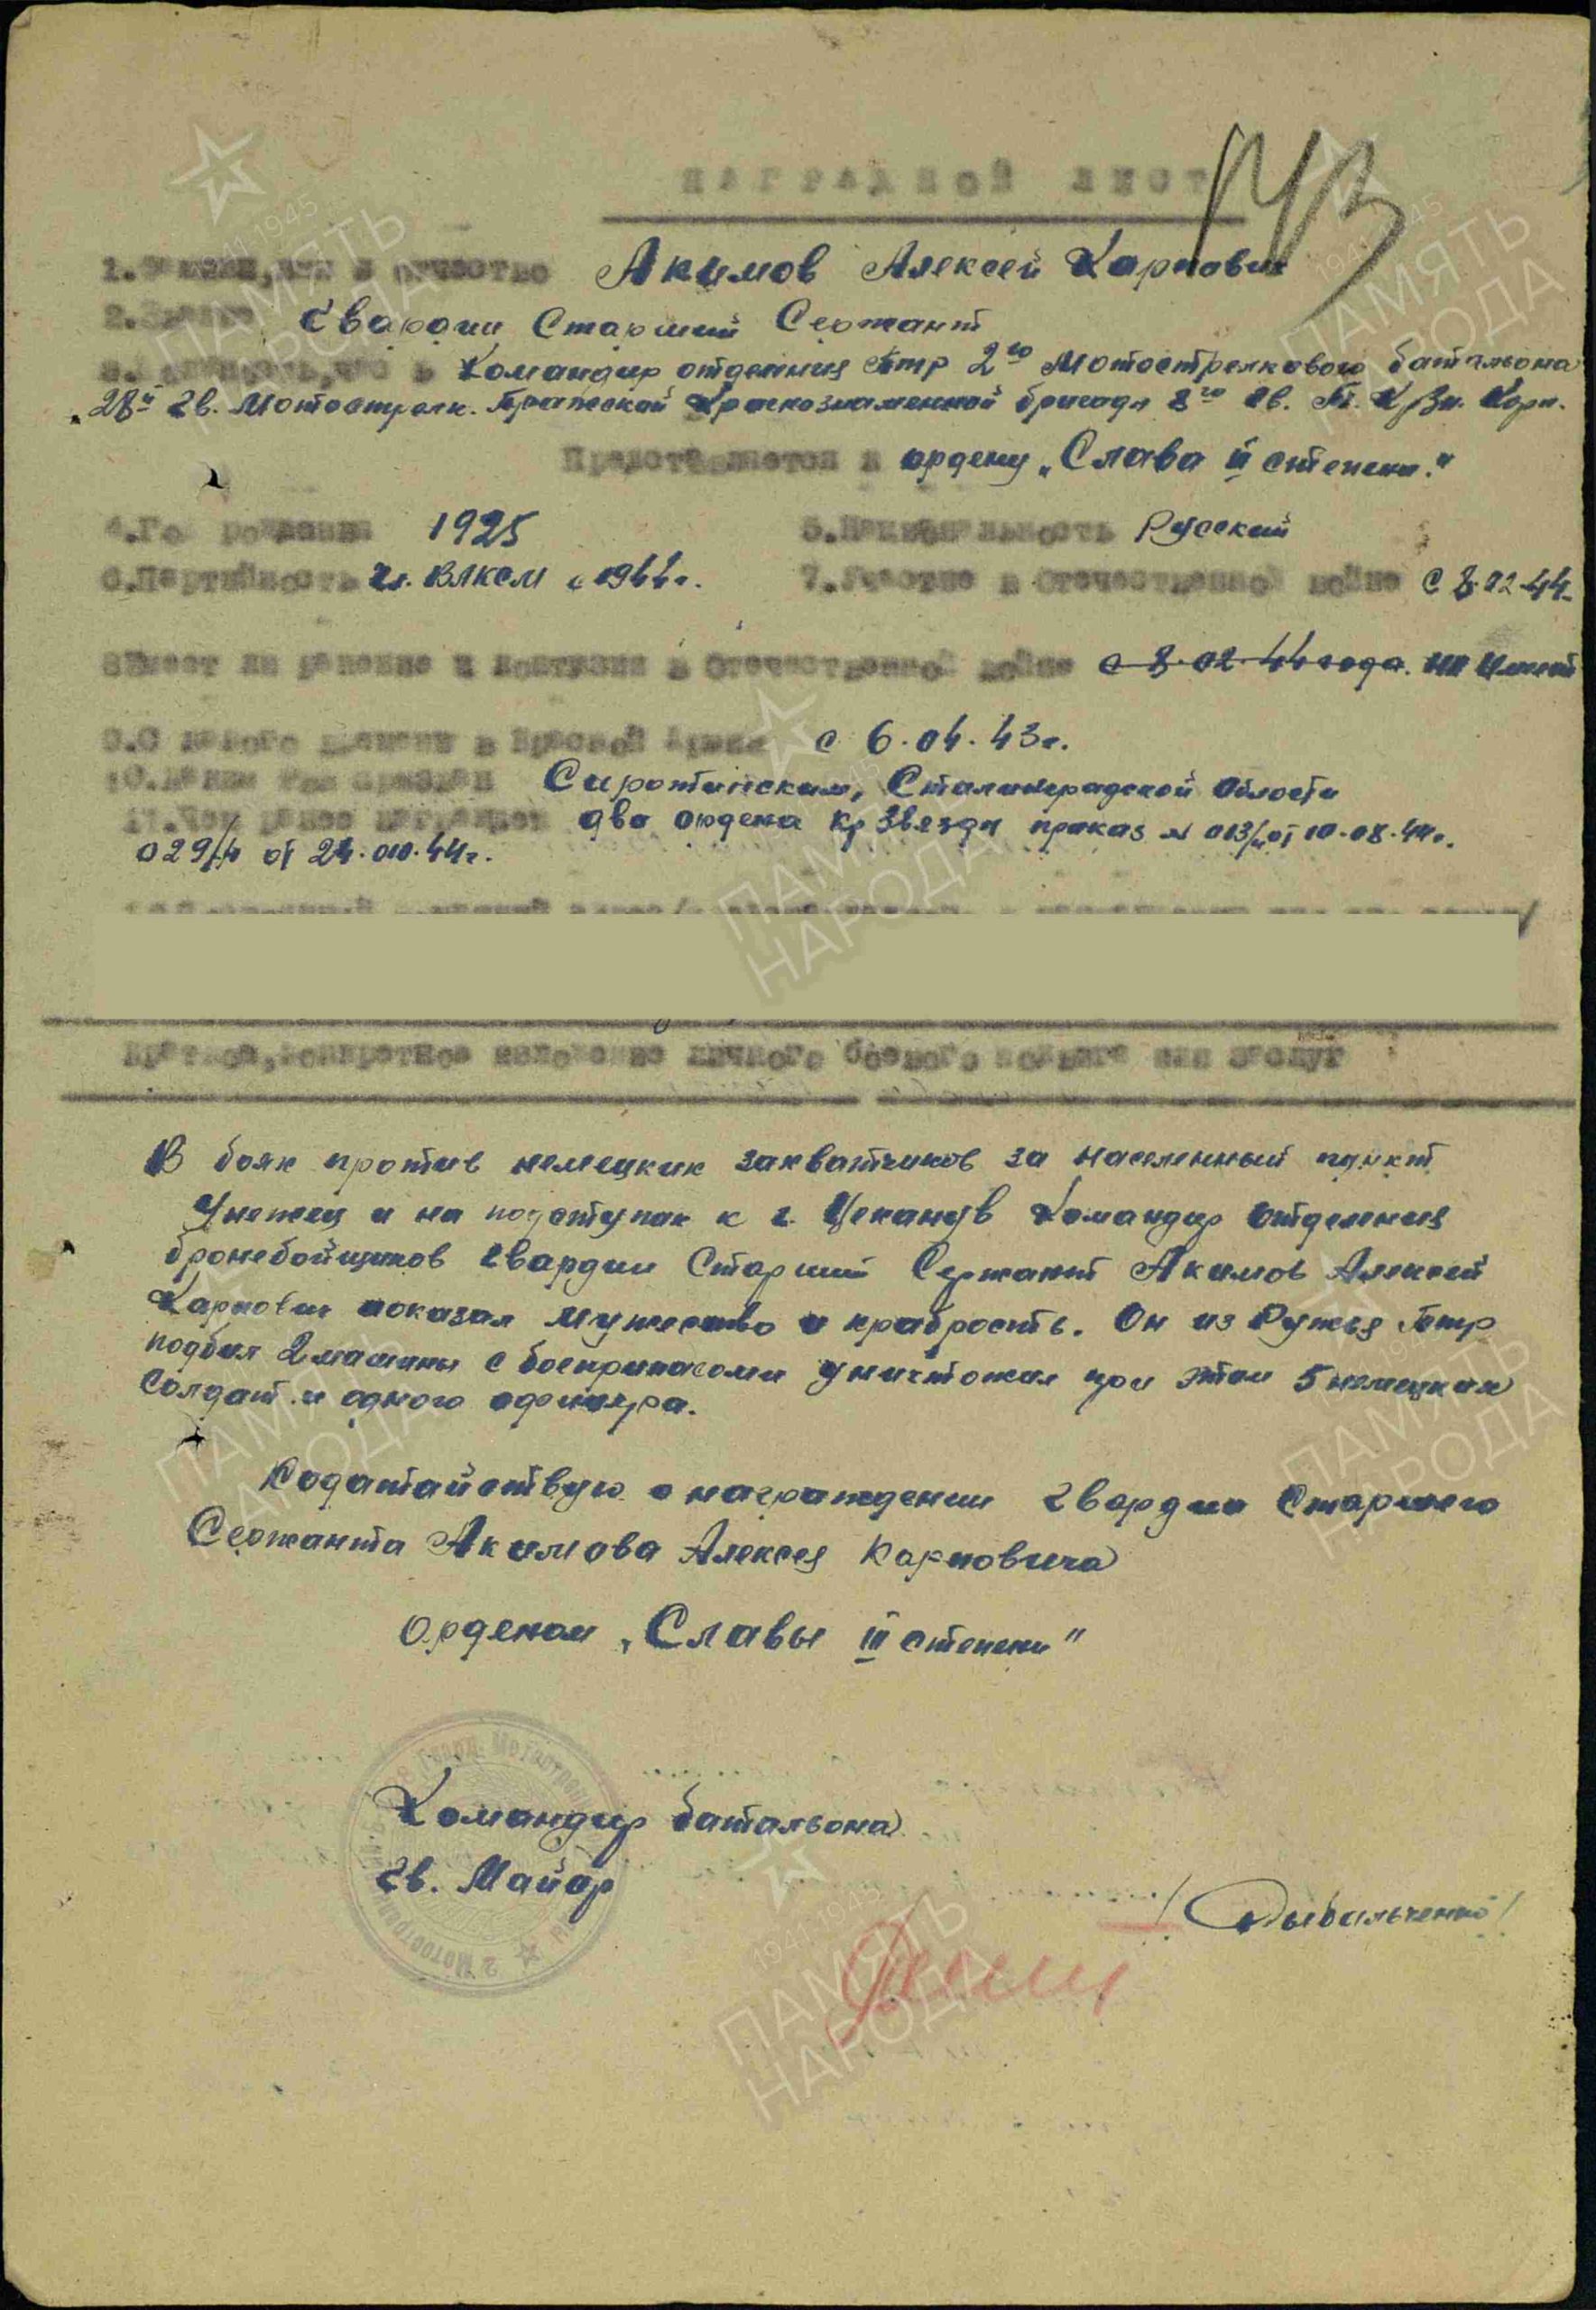 НАГРАДНОЙ ЛИСТ
1.Фамилия,имя и отчество Акимов Алексей Карпович
2.Звание Гвардии Старший Сержант
3.Должность,часть Командир отделения Птр 2го Мотострелкового батальона
28й Гв. Мотострелк. Пражской Краснознаменной бригады 8го Гв. Т. К Зн. Корп.
Представляется к ордену „Слава III степени."
4.Год рождения 1925 5.Национальность Русский
6.Партийность чл. ВЛКСМ с 1944г. 7.Участие в Отечественной войне с 8.02.44
8Имеет ли ранения и контузии в Отечественной войне с 8.02.44 года. не имеет
9.С какого времени в Красной Армии с 6.04.43г.
10.Каким РВК призван Сиротинским, Сталинградской области
11.Чем ранее награжден два ордена Кр Звезды приказ № 013/н от 10.08.44г.
029/н от 24.010.44г.
Краткое,конкретное изложение личного боевого подвига или заслуг
В боях против немецких захватчиков за населенный пункт
и на подступах к г. Цеханув Командир отделения
бронебойщиков гвардии Старший Сержант Акимов Алексей
Карпович показал мужество и храбрость. Он из Ружья Птр
подбил 2 машины с боеприпасами уничтожил при этом 5 немецких
Солдат и одного офицера.
Ходатайствую о награждении гвардии Старшего
Сержанта Акимова Алексея Карповича
Орденом „Славы III степени"
Командир батальона
Гв. Майор
/Дывальченко/
1941-1945
ПАМЯТЬ
НАРОДА